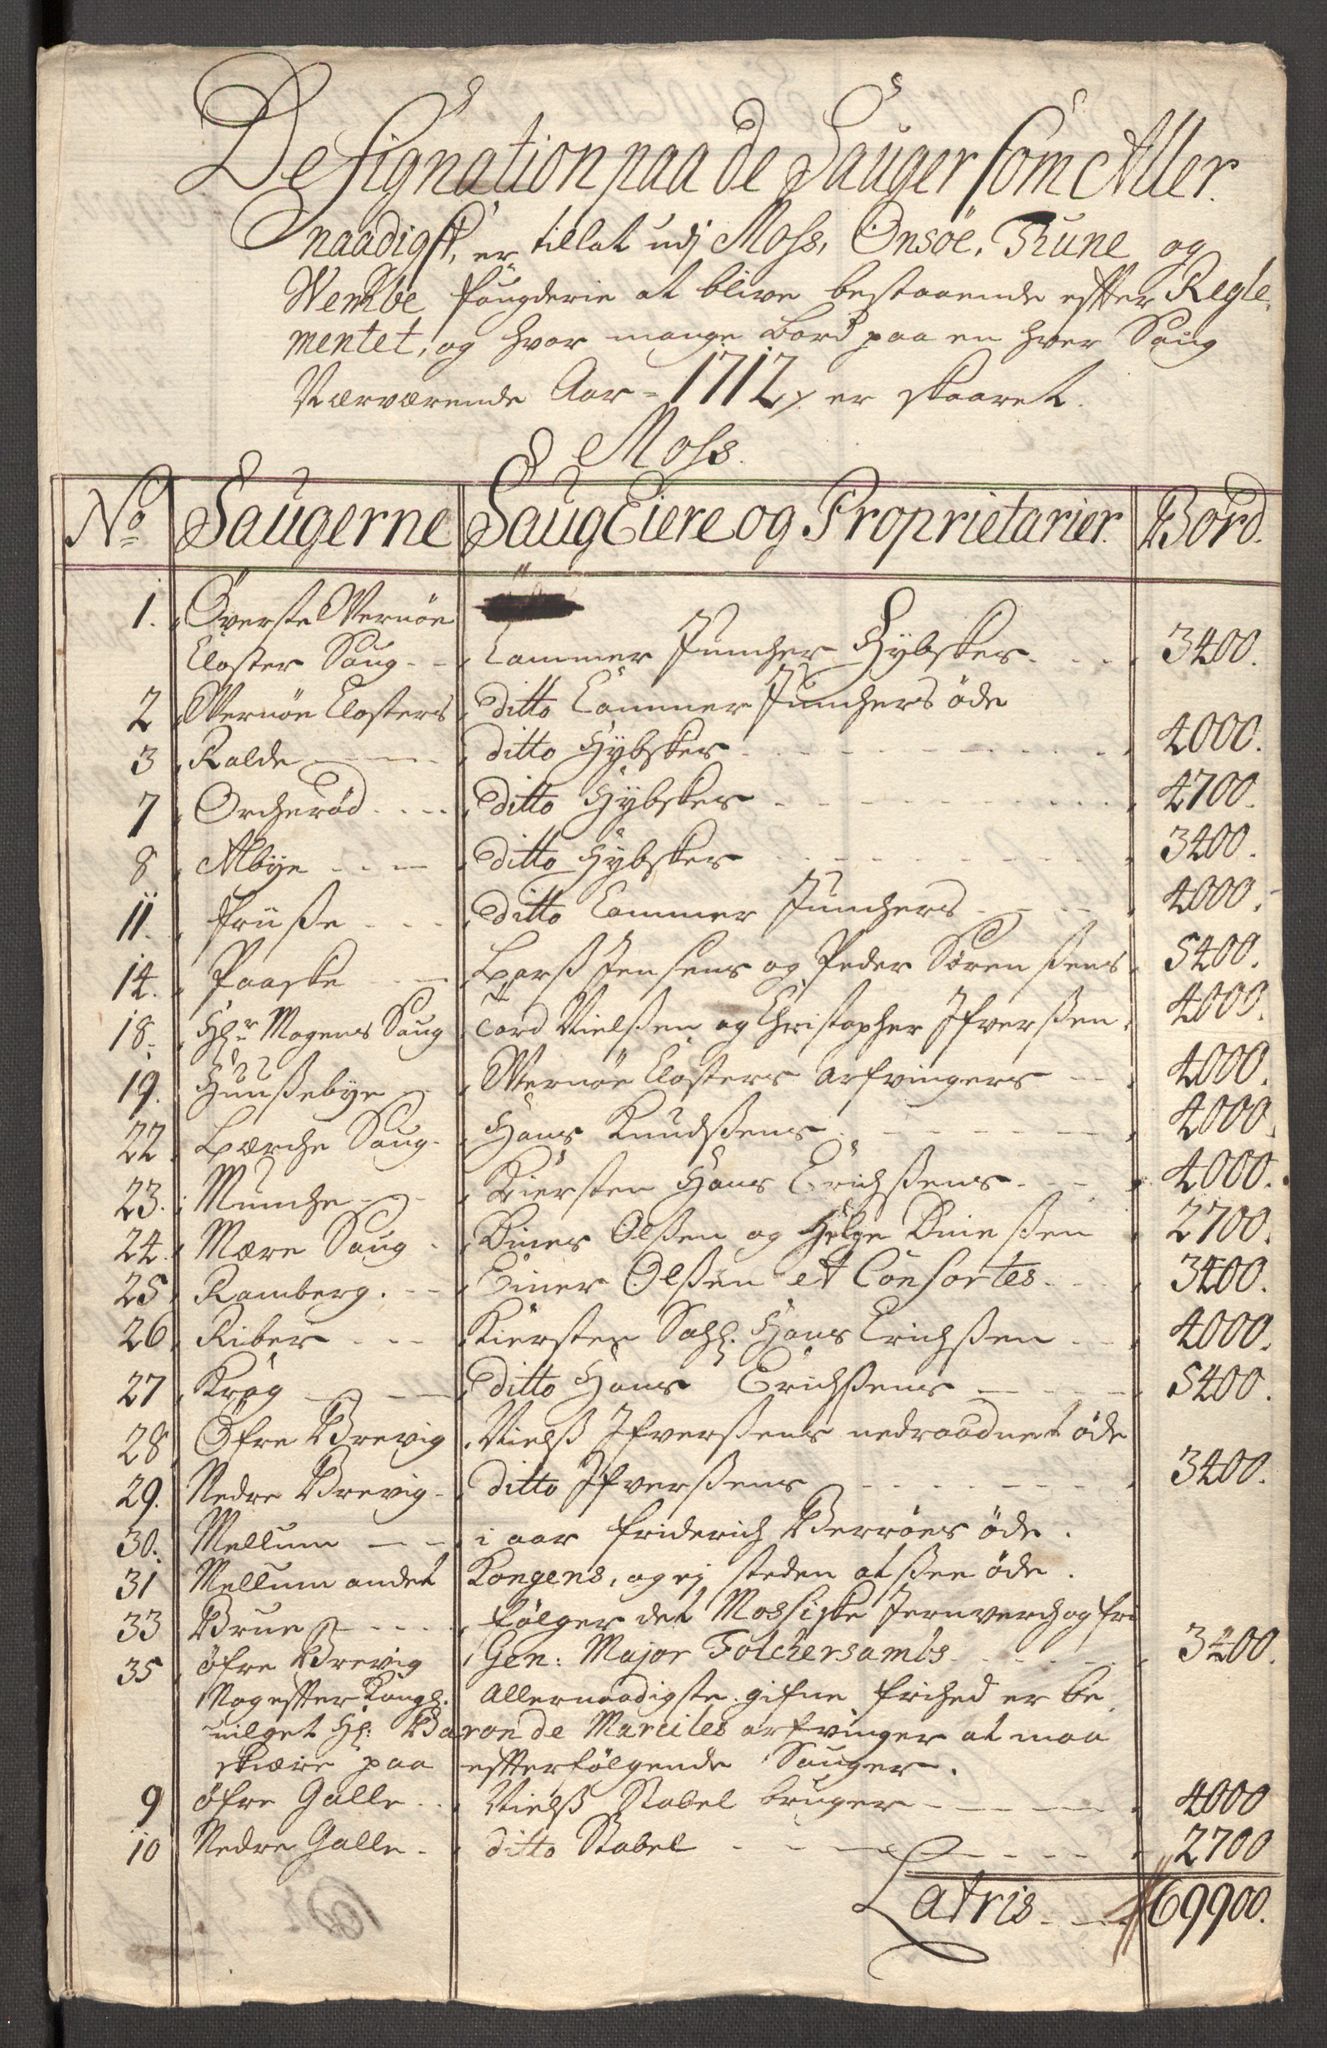 Designation paa de Sauger som Aller-
naadigst, er tillat udj Moss, Onsöe, Thune og
Wembe fougderie at blive bestaaende effter Regle-
mentet, og hvor mange Bord paa en hver Saug
Nærværende Aar = 1712, er skaaret.
Moss.
No Saugerne Saug Eiere og Proprietarier. Bord.
1. Överste Wernöe
Closter Saug - - Cammer Juncher Hÿbskes . . . 3400.
2 Wernöe Closters ditto Cammer Junchers öde
3 Ralde - - - ditto Hÿbskes - - - 4000.
7 Orcherød . . . ditto Hÿbskes - - - 4700.
8 Albye . . . ditto Hÿbskes - - - 3400.
11. Früsse . . . ditto Cammer Junchers - - - 4000.
14. Paaske - - - Larss Jensens og Peder Sörenssens 5400.
18. Hr. Mogens Saug Tord Nielssen og Christopher Ifverssen 4000.
19. Huussebye - Wernöe Closters Arfvingers - - 4000.
22. Lærche Saug - Hans Knudssens - - - 4000.
23. Munche - - Kiersten Hans Erichssens - - - 4000.
24. Mære Saug - Dines Olssen og Helge Dinessen 2700.
25. Ramberg . - - Einer Olssen et Consortes - - - 3400.
26. Riber - - - Kiersten Sahl. Hans Erichssen - - 4000.
27. Krog - - - ditto Hans Erichssens - - - 5400.
28. Öfre Brevig Nielss Ifverssens nedraadnet öde
29. Nedre Brevig - ditto Ifverssens - - - 3400.
30. Mellum - - - i aar Friderich Berröes öde.
31 Mellum andet Kongens, og ej steden at skee öde.
33 Brue - - - fölger det Mossiske Jernverch og fri
35 öfre Brevig Gen: Major Tolchersambs - - - 3400.
Nog effter Kongl. Allernaadigste gifne frihed er be-
vilget Hr. Baron de Marcilles arfvinger at maa
skiære paa effterfölgende Sauger.
9 öfre Galle . . Nielss Stabel bruger - - - 4000
10 Nedre Galle . ditto Stabel - - - 2700
Latris - - 69900.